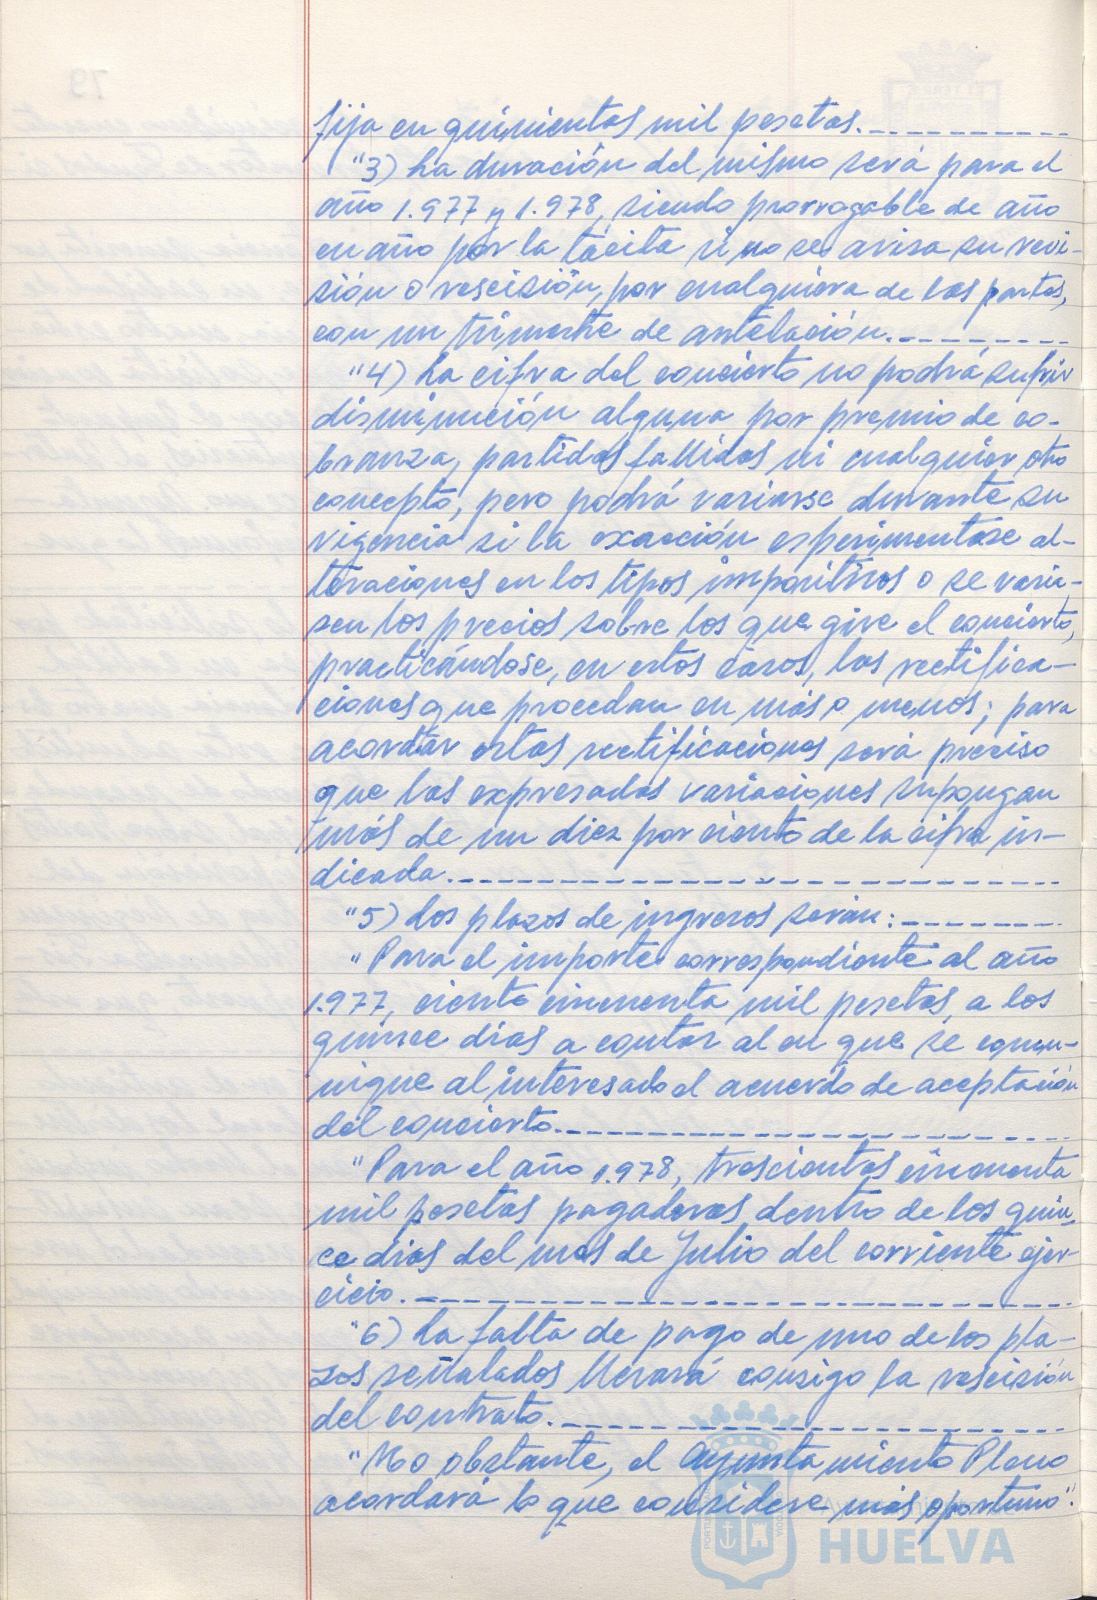 fija en quinientas mil pesetas.
"3) La duración del mismo será para el
año 1.977 y 1.978, siendo prorrogable de año
en año por la tácita si no se avisa su revi-
sión o rescisión, por cualquiera de las partes,
con un trimestre de antelación.
"4) La cifra del concierto no podrá sufrir
disminución alguna por premio de co-
branza, partidas fallidas ni cualquier otro
concepto, pero podrá variarse durante su
vigencia si la exacción experimentase al-
teraciones en los tipos impositivos o se varia-
sen los precios sobre los que gire el concierto,
practicándose, en estos casos, las rectifica-
ciones que procedan en más o menos; para
acordar estas rectificaciones será preciso
que las expresadas variaciones supongan
más de un diez por ciento de la cifra in-
dicada.
"5) Los plazos de ingresos serán:
"Para el importe correspondiente al año
1.977, ciento cincuenta mil pesetas, a los
quince días a contar al en que se comu-
nique al interesado el acuerdo de aceptación
del concierto.
"Para el año 1.978, trescientas cincuenta
mil pesetas pagaderas dentro de los quin-
ce días del mes de Julio del corriente ejer-
cicio.
"6) La falta de pago de uno de los pla-
zos señalados llevará consigo la rescisión
del contrato.
"No obstante, el Ayuntamiento Pleno
acordará lo que considere más oportuno".
HUELVA